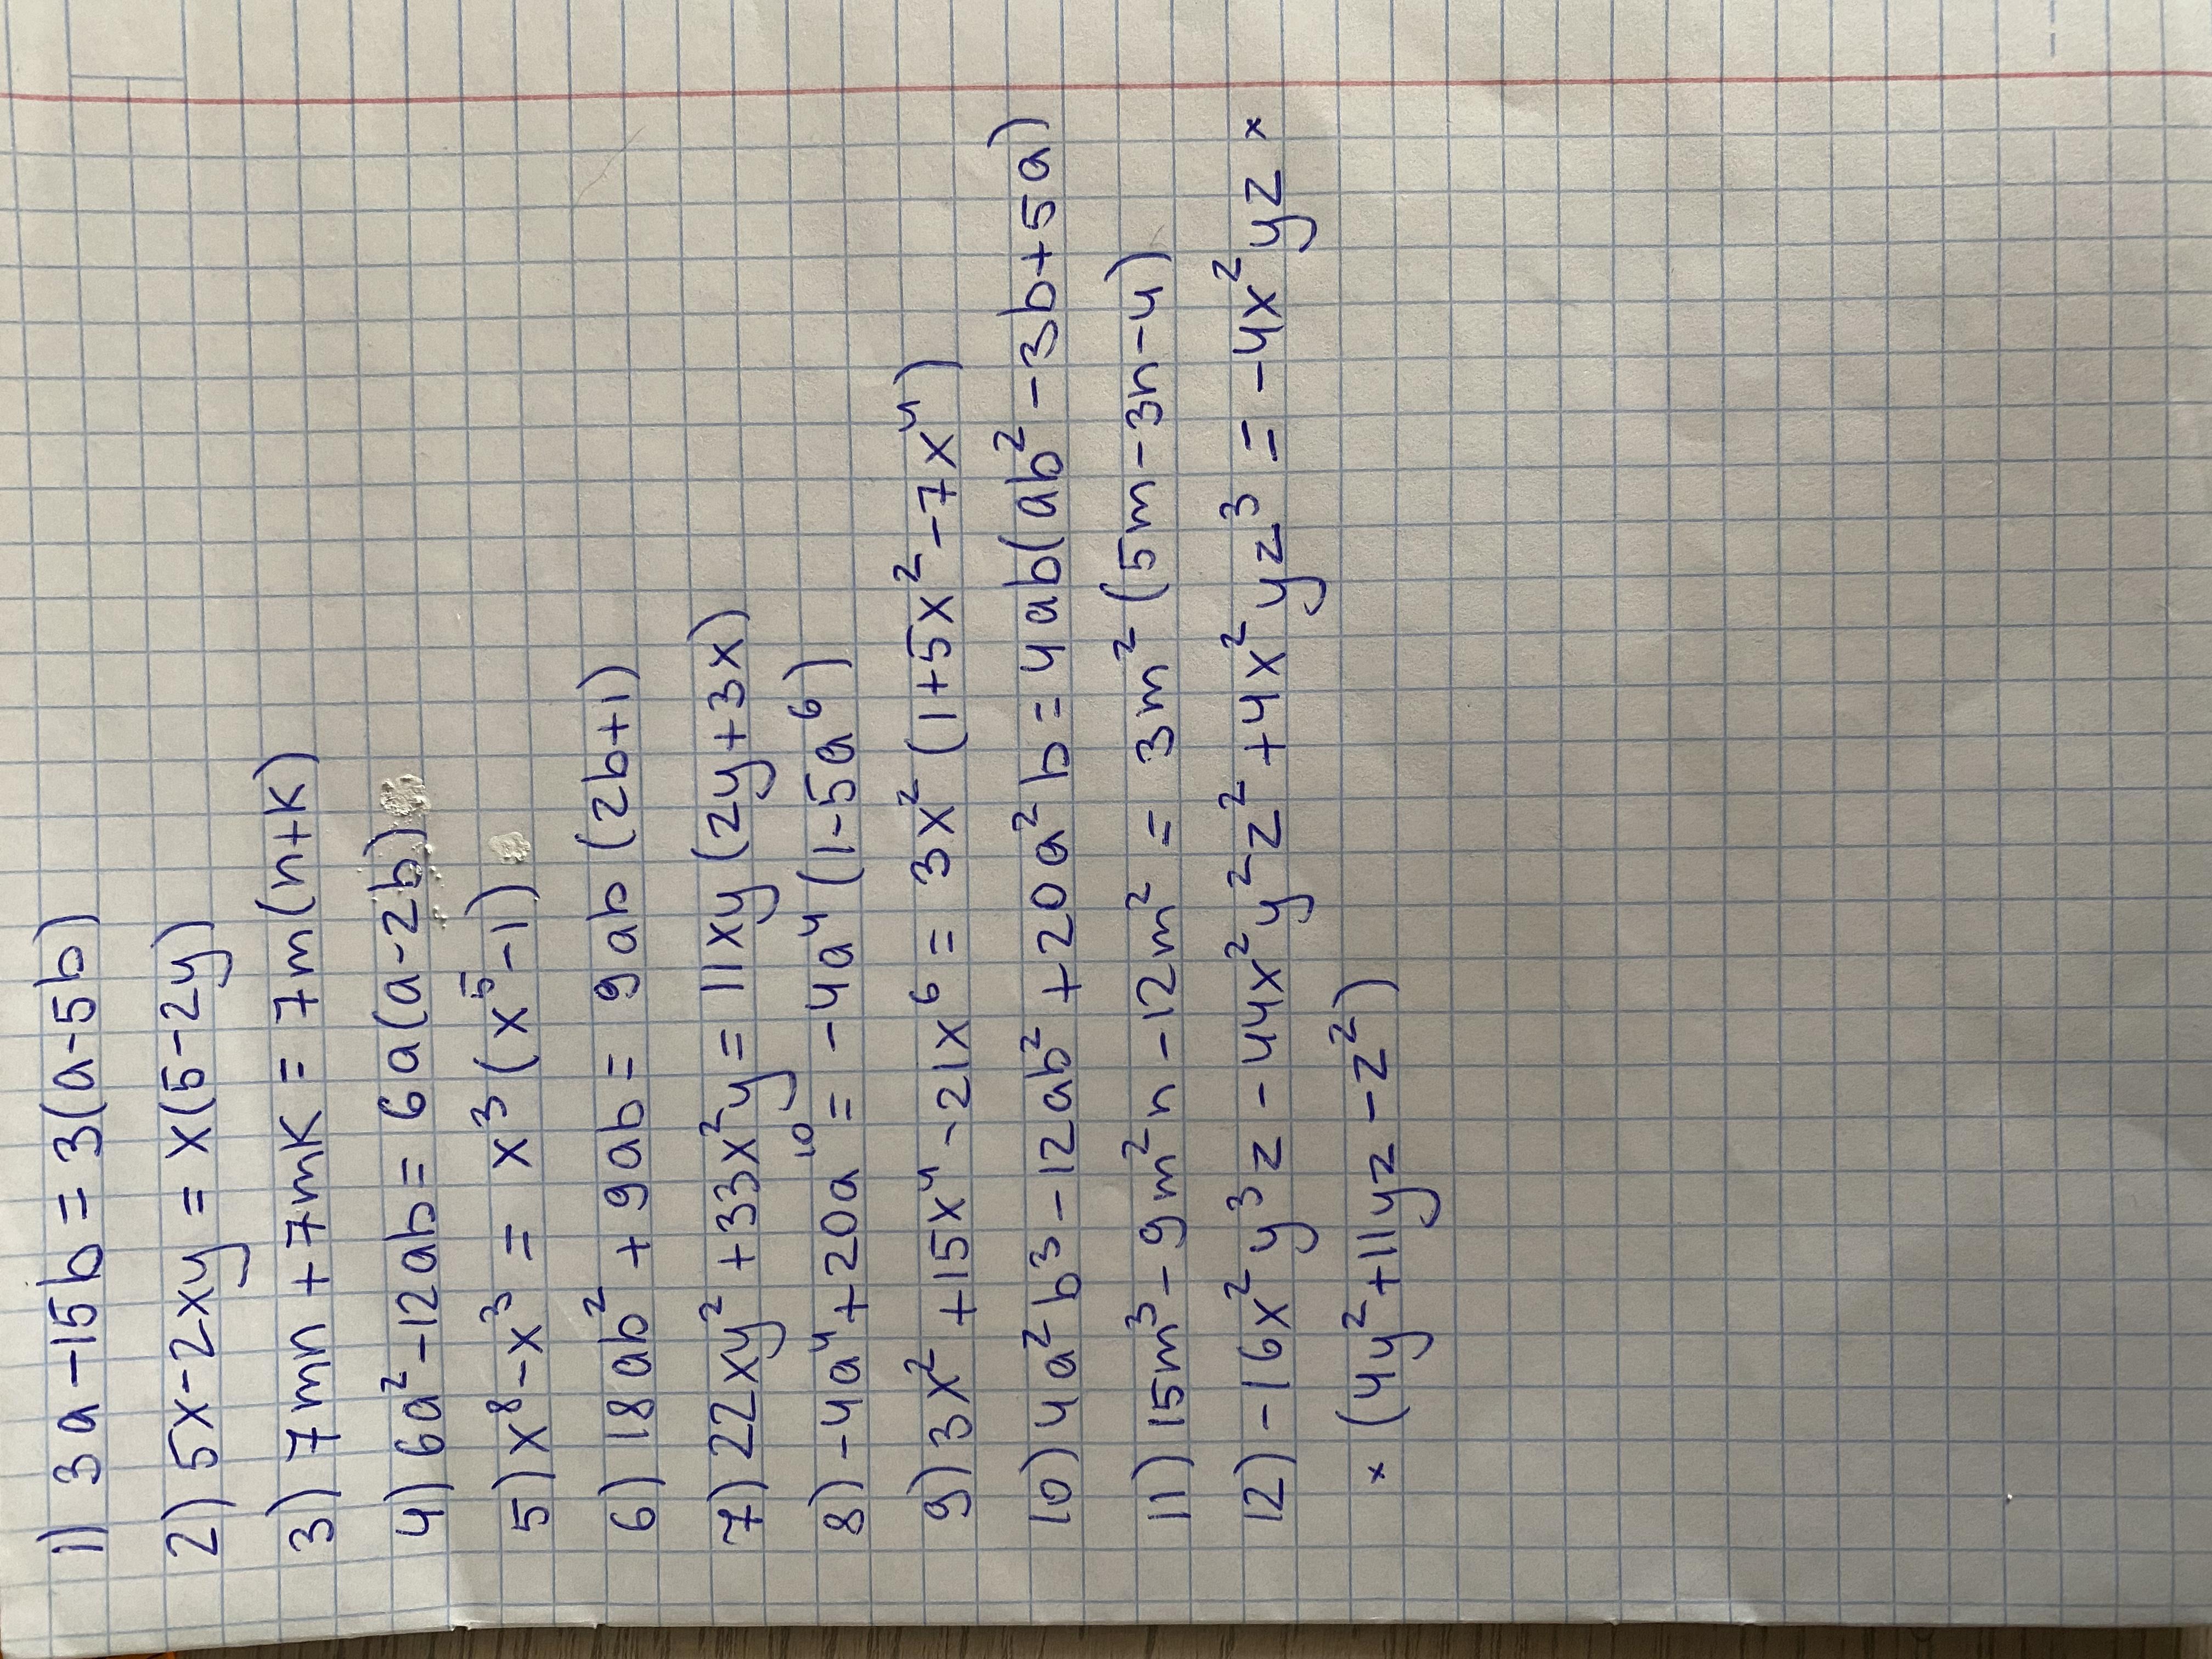 1) 3a-15b=3(a-5b)
2) 5x-2xy=x(5-2y)
3) 7mn+7mk=7m(n+k)
4) 6a²-12ab=6a(a-2b)
5) x⁸-x³=x³(x⁵-1)
6) 18ab²+9ab=9ab(2b+1)
7) 22xy²+33x²y=11xy(2y+3x)
8) -4a⁴+20a¹⁰=-4a⁴(1-5a⁶)
9) 3x²+15x⁴-21x⁶=3x²(1+5x²-7x⁴)
10) 4a²b³-12ab²+20a²b=4ab(ab²-3b+5a)
11) 15m³-9m²n-12m²=3m²(5m-3n-4)
12) -16x²y³z-44x²y²z²+4x²yz³=-4x²yz×
×(4y²+11yz-z²)